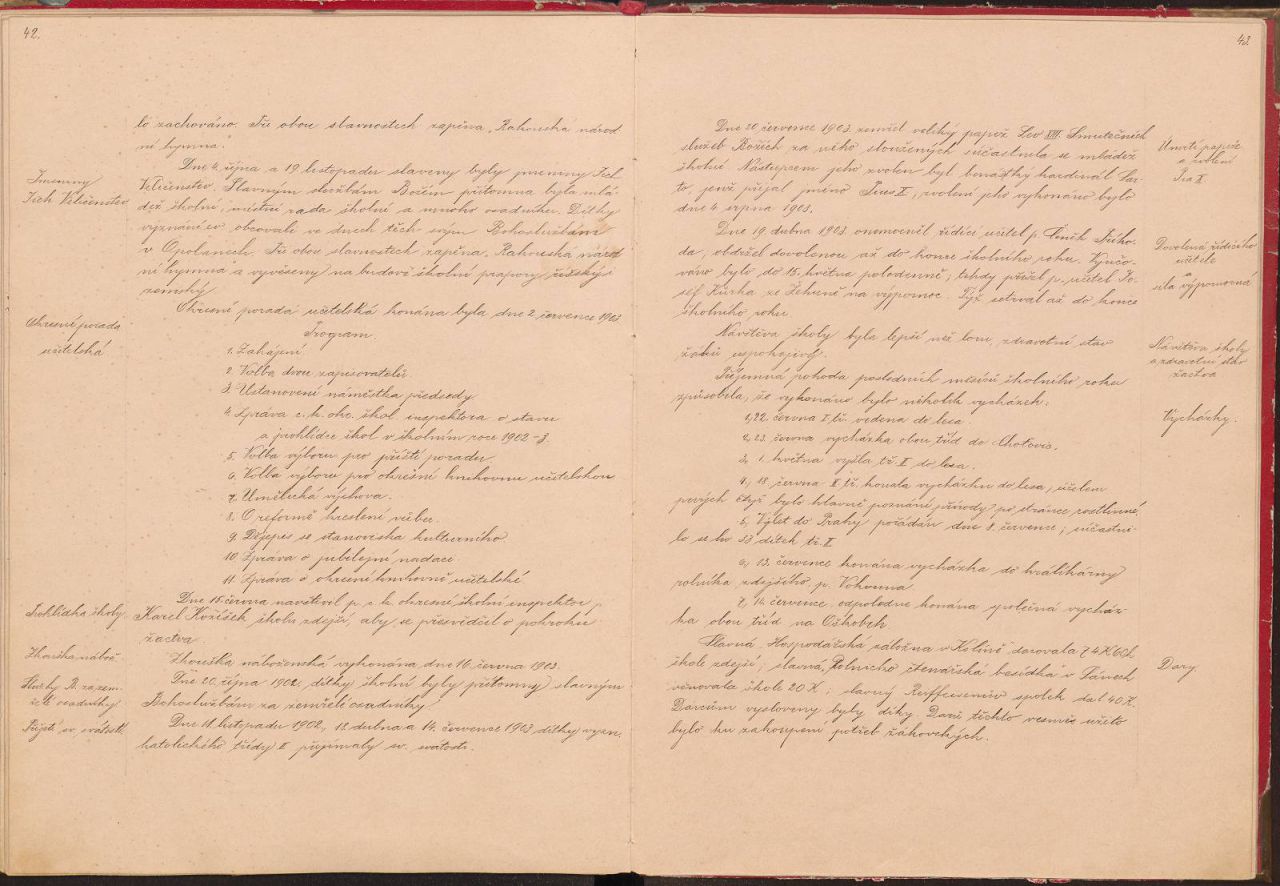 42.
lo zachováno. Při obou slavnostech zapěna „Rakouská národ
ní hymna.
Jmeniny
Jich Veličenstev
Dne 4. října a 19. listopadu slaveny byly jmeniny Jich
Veličenstev. Slavným službám Božím přítomna byla mlá-
dež školní, místní rada školní a mnoho osadníků. Dítky
vyznání ev. obcovali ve dnech těch svým Bohoslužbám
v Opolanech. Při obou slavnostech zapěna „Rakouská národ
ní hymna a vyvěšeny na budově školní prapory
zemský.
Okresní porada
učitelská
Okresní porada učitelská konána byla dne 2. července 1903
Program
1. Zahájení
2. Volba dvou zapisovatelů.
3. Ustanovení náměstka předsedy
4. Zpráva c. k. okr. škol. inspektora o stavu
a prohlídce škol v školním roce 1902-3.
5. Volba výboru pro příští poradu.
6. Volba výboru pro okresní knihovnu učitelskou
7. Umělecká výchova.
8. O reformě kreslení vůbec.
9. Dějepis se stanoviska kulturního
10. Zpráva o jubilejní nadaci.
11. Zpráva o okresní knihovně učitelské
Prohlídka školy.
Dne 15. června navštívil p. c. k. okresní školní inspektor
Karel Kožíšek školu zdejší, aby se přesvědčil o pokroku
žactva.
Zkouška nábož.
Zkouška náboženská vykonána dne 16. června 1903.
Služby B. za zem-
řelé osadníky
Dne 20. října 1902, dítky školní byly přítomny slavným
Bohoslužbám za zemřelé osadníky.
Přijetí sv. svátostí.
Dne 11. listopadu 1902, 18. dubna a 14. července 1903 dítky vyzn.
katolického třídy II přijímaly sv. svátosti.
43.
Dne 20. července 1903 zemřel veliký papež Lev XIII. Smutečních
služeb Božích za něho sloužených súčastnila se mládež
školní. Nástupcem jeho zvolen byl benátský kardinál Sar-
to, jenž přijal jméno Pius X; zvolení jeho vykonáno bylo
dne 4. srpna 1903.
Úmrtí papeže
a zvolení
Pia X
Dne 19. dubna 1903 onemocněl řídící učitel p. Čeněk
da, obdržel dovolenou až do konce školního roku. Vyučo-
váno bylo do 15. května polodenně; tehdy přišel p. učitel Jo-
sef Kůrka ze Žehuně na výpomoc. Týž setrval až do konce
školního roku.
Dovolená řídícího
učitele
a
síla výpomocná
Návštěva školy byla lepší než loni, zdravotní stav
žáků uspokojivý.
Návštěva školy
a zdravotní stav
žactva
Příjemná pohoda posledních měsíců školního roku
způsobila, že vykonáno bylo několik vycházek.
Vycházky.
1, 22. června I. tř. vedena do lesa.
2, 23. června vycházka obou tříd do Chotovic.
3, 1. května vyšla tř. II do lesa.
4, 18. června II. tř. konala vycházku do lesa; účelem
prvých čtyř bylo hlavně poznání přírody po stránce rostlinné.
5, Výlet do Prahy pořádán dne 8. července; súčastni-
lo se ho 53 dítek tř. II
6, 13. července konána vycházka do králíkárny
rolníka zdejšího p. Vokouna
7, 14. července odpoledne konána společná vycház-
ka obou tříd na Oškobrh
Dary.
Slavná „Hospodářská záložna v Kolíně darovala 74 K 60 h.
škole zdejší; slavná „Rolnicko čtenářská besídka v Sánech
věnovala škole 20 K; slavný Reiffeisenův spolek dal 40 K.
Dárcům vysloveny byly díky. Darů těchto vesměs užito
bylo ku zakoupení potřeb žákovských.